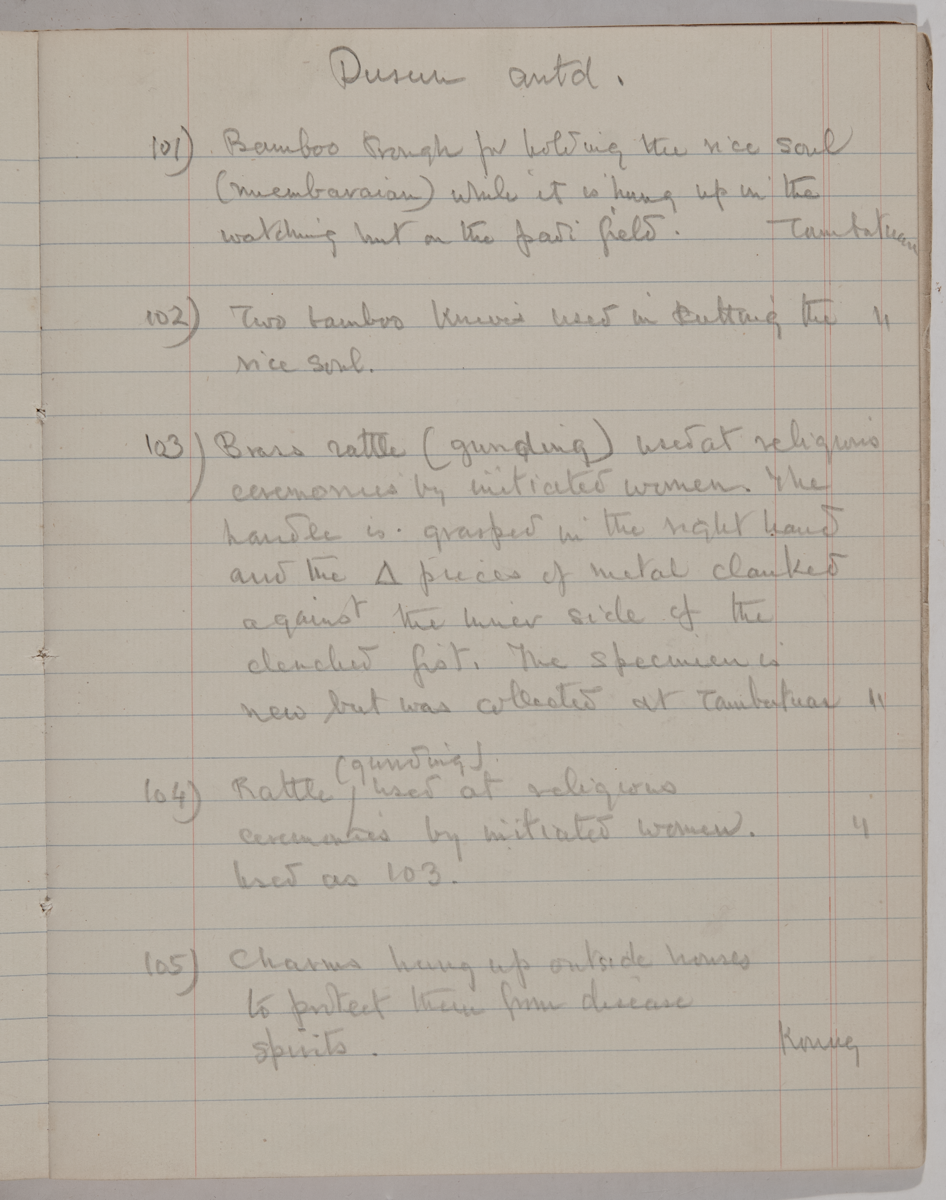 Dusun contd.
101) Bamboo trough for holding the rice soul
(membaraian) while it is hung up in the
watching hut on the padi field. Tambatuan
102) Two bamboo knives used in cutting the "
rice soul.
103) Brass rattle (gunding) used at religious
ceremonies by initiated women. The
handle is grasped in the right hand
and the Δ pieces of metal clanked
against the inner side of the
clenched fist. The specimen is
new but was collected at Tambatuan "
(gunding)
104) Rattle used at religious
ceremonies by initiated women. "
Used as 103.
105) Charms hung up outside houses
to protect them from disease
spirits.